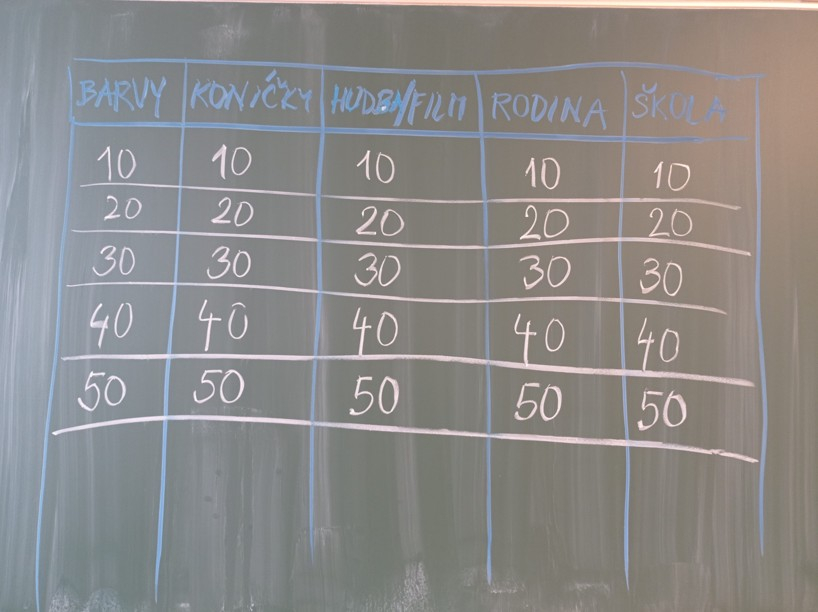 BARVY KONÍČKY HUDBA/FILM RODINA ŠKOLA
10 10 10 10 10
20 20 20 20 20
30 30 30 30 30
40 40 40 40 40
50 50 50 50 50